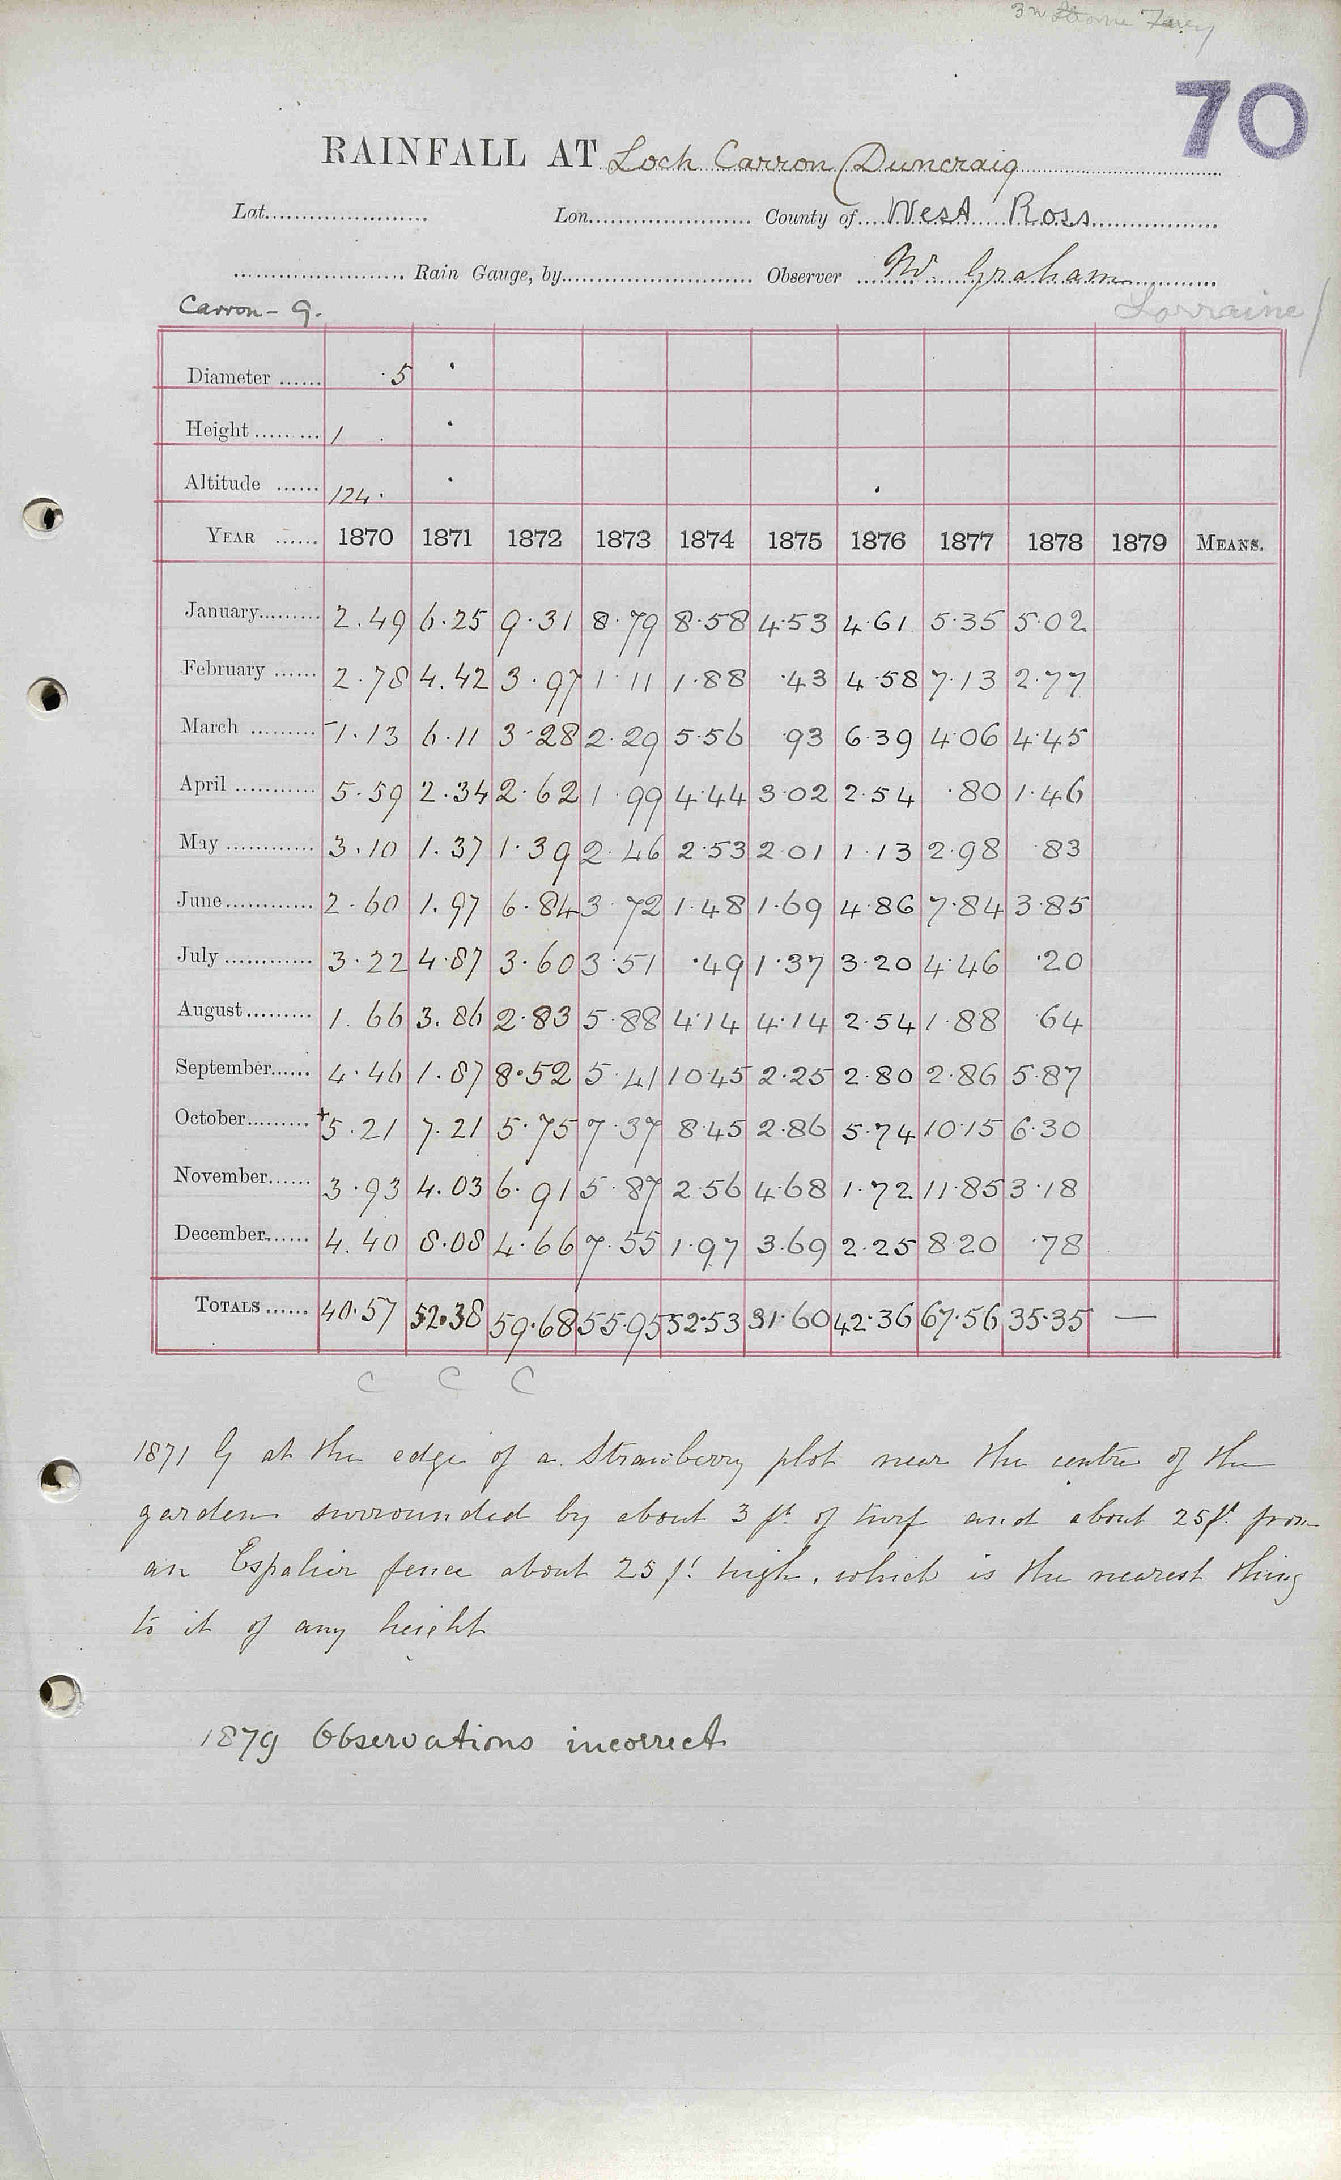 70
RAINFALL AT Loch Carron (Duncraig
Lat. Lon. County of West Ross
Rain Gauge, by Observer Graham
Carron - G. Lorraine
Diameter ...... ·5
Height ......... 1
Altitude ...... 124·
YEAR ...... 1870 1871 1872 1873 1874 1875 1876 1877 1878 1879 MEANS.
January......... 2.49 6.25 9.31 8.79 8.58 4.53 4.61 5.35 5.02
February ...... 2.78 4.42 3.97 1.11 1.88 .43 4.58 7.13 2.77
March ......... -1.13 6.11 3.28 2.29 5.56 93 6.39 4.06 4.45
April ............ 5.59 2.34 2.62 1.99 4.44 3.02 2.54 .80 1.46
May ............. 3.10 1.37 1.39 2.46 2.53 2.01 1.13 2.98 .83
June............. 2.60 1.97 6.84 3.72 1.48 1.69 4.86 7.84 3.85
July ............. 3.22 4.87 3.60 3.51 .49 1.37 3.20 4.46 .20
August.......... 1.66 3.86 2.83 5.88 4.14 4.14 2.54 1.88 .64
September...... 4.46 1.87 8.52 5.41 10.45 2.25 2.80 2.86 5.87
October......... +5.21 7.21 5.75 7.37 8.45 2.86 5.74 10.15 6.30
November...... 3.93 4.03 6.91 5.87 2.56 4.68 1.72 11.85 3.18
December...... 4.40 8.08 4.66 7.55 1.97 3.69 2.25 8.20 .78
TOTALS ...... 40.57 52.38 59.68 55.95 52.53 31.60 42.36 67.56 35.35 —
C C C
1871 G at the edge of a Strawberry plot near the centre of the
garden surrounded by about 3 ft. of turf and about 25 ft. from
an Espalier fence about 25 ft. high, which is the nearest thing
to it of any height
1879 Observations incorrect